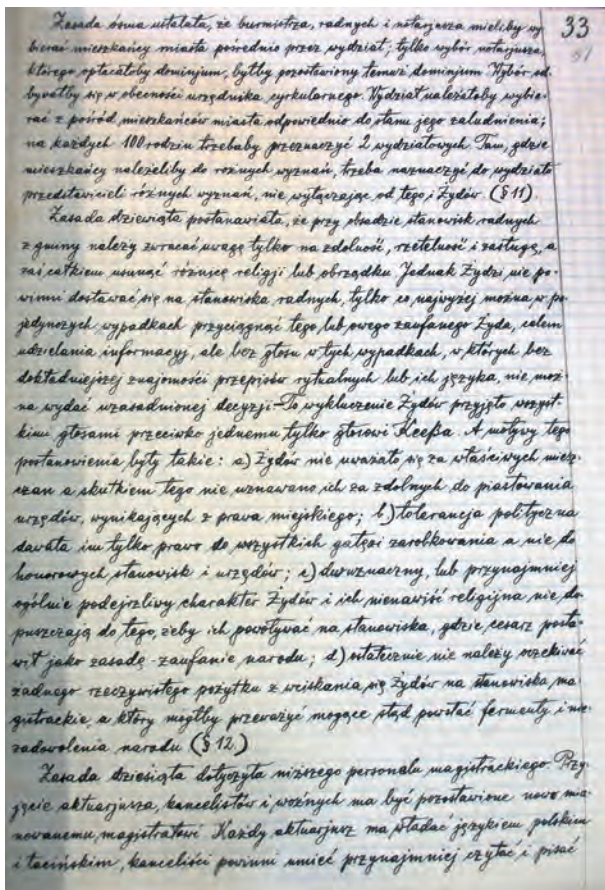 33
Zasada ósma ustalała, że burmistrza, radnych i notarjusza mieliby wy
bierać mieszkańcy miasta pośrednio przez wydział; tylko wybór notarjusza,
którego opłacałoby dominjum, byłby pozostawiony temuż dominjum. Wybór od-
bywałby się w obecności urzędnika cyrkularnego. Wydział należałoby wybie-
rać z pośród mieszkańców miasta odpowiednio do stanu jego zaludnienia;
na każdych 100 rodzin trzebaby przeznaczyć 2 wydziałowych. Tam, gdzie
mieszkańcy należeliby do różnych wyznań, trzeba naznaczyć do wydziału
przedstawicieli różnych wyznań, nie wyłączając od tego i Żydów. (§ 11).
Zasada dziewiąta postanawiała, że przy obsadzie stanowisk radnych
z gminy należy zwracać uwagę tylko na zdolność, rzetelność i zasługę, a
zaś całkiem usunąć różnicę religji lub obrządku. Jednak Żydzi nie po-
winni dostawać się na stanowiska radnych, tylko co najwyżej można w po-
jedynczych wypadkach przyciągnąć tego, lub owego zaufanego Żyda, celem
udzielania informacyj, ale bez głosu w tych wypadkach, w których bez
dokładniejszej znajomości przepisów rytualnych lub ich języka, nie moż-
na wydać uzasadnionej decyzji.– To wykluczenie Żydów przyjęto wszyst-
kimi głosami przeciwko jednemu tylko głosowi Keefia. A motywy tego
postanowienia były takie: a) Żydów nie uważało się za właściwych miesz-
czan a skutkiem tego nie uznawano ich za zdolnych do piastowania
urzędów, wynikających z prawa miejskiego; b) tolerancja polityczna
dawała im tylko prawo do wszystkich gałęzi zarobkowania a nie do
honorowych stanowisk i urzędów; c) dwuznaczny, lub przynajmniej
ogólnie podejrzliwy charakter Żydów i ich nienawiść religijna nie do-
puszczają do tego, żeby ich powoływać na stanowiska, gdzie cesarz posta-
wił jako zasadę - zaufanie narodu; d) ostatecznie nie należy oczekiwać
żadnego rzeczywistego pożytku z wciskania się Żydów na stanowiska ma-
gistrackie, a który mógłby przeważyć mogące stąd powstać fermenty i nie-
zadowolenia narodu (§ 12.)
Zasada dziesiąta dotyczyła niższego personalu magistrackiego. Przy-
jęcie aktuarjusza, kancelistów i woźnych ma być pozostawione nowo mia-
nowanemu, magistratowi. Każdy aktuarjusz ma władać językiem polskim
i łacińskim, kanceliści powinni umieć przynajmniej czytać i pisać